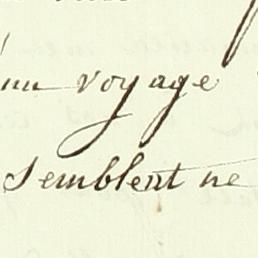 voyage
semblent ne